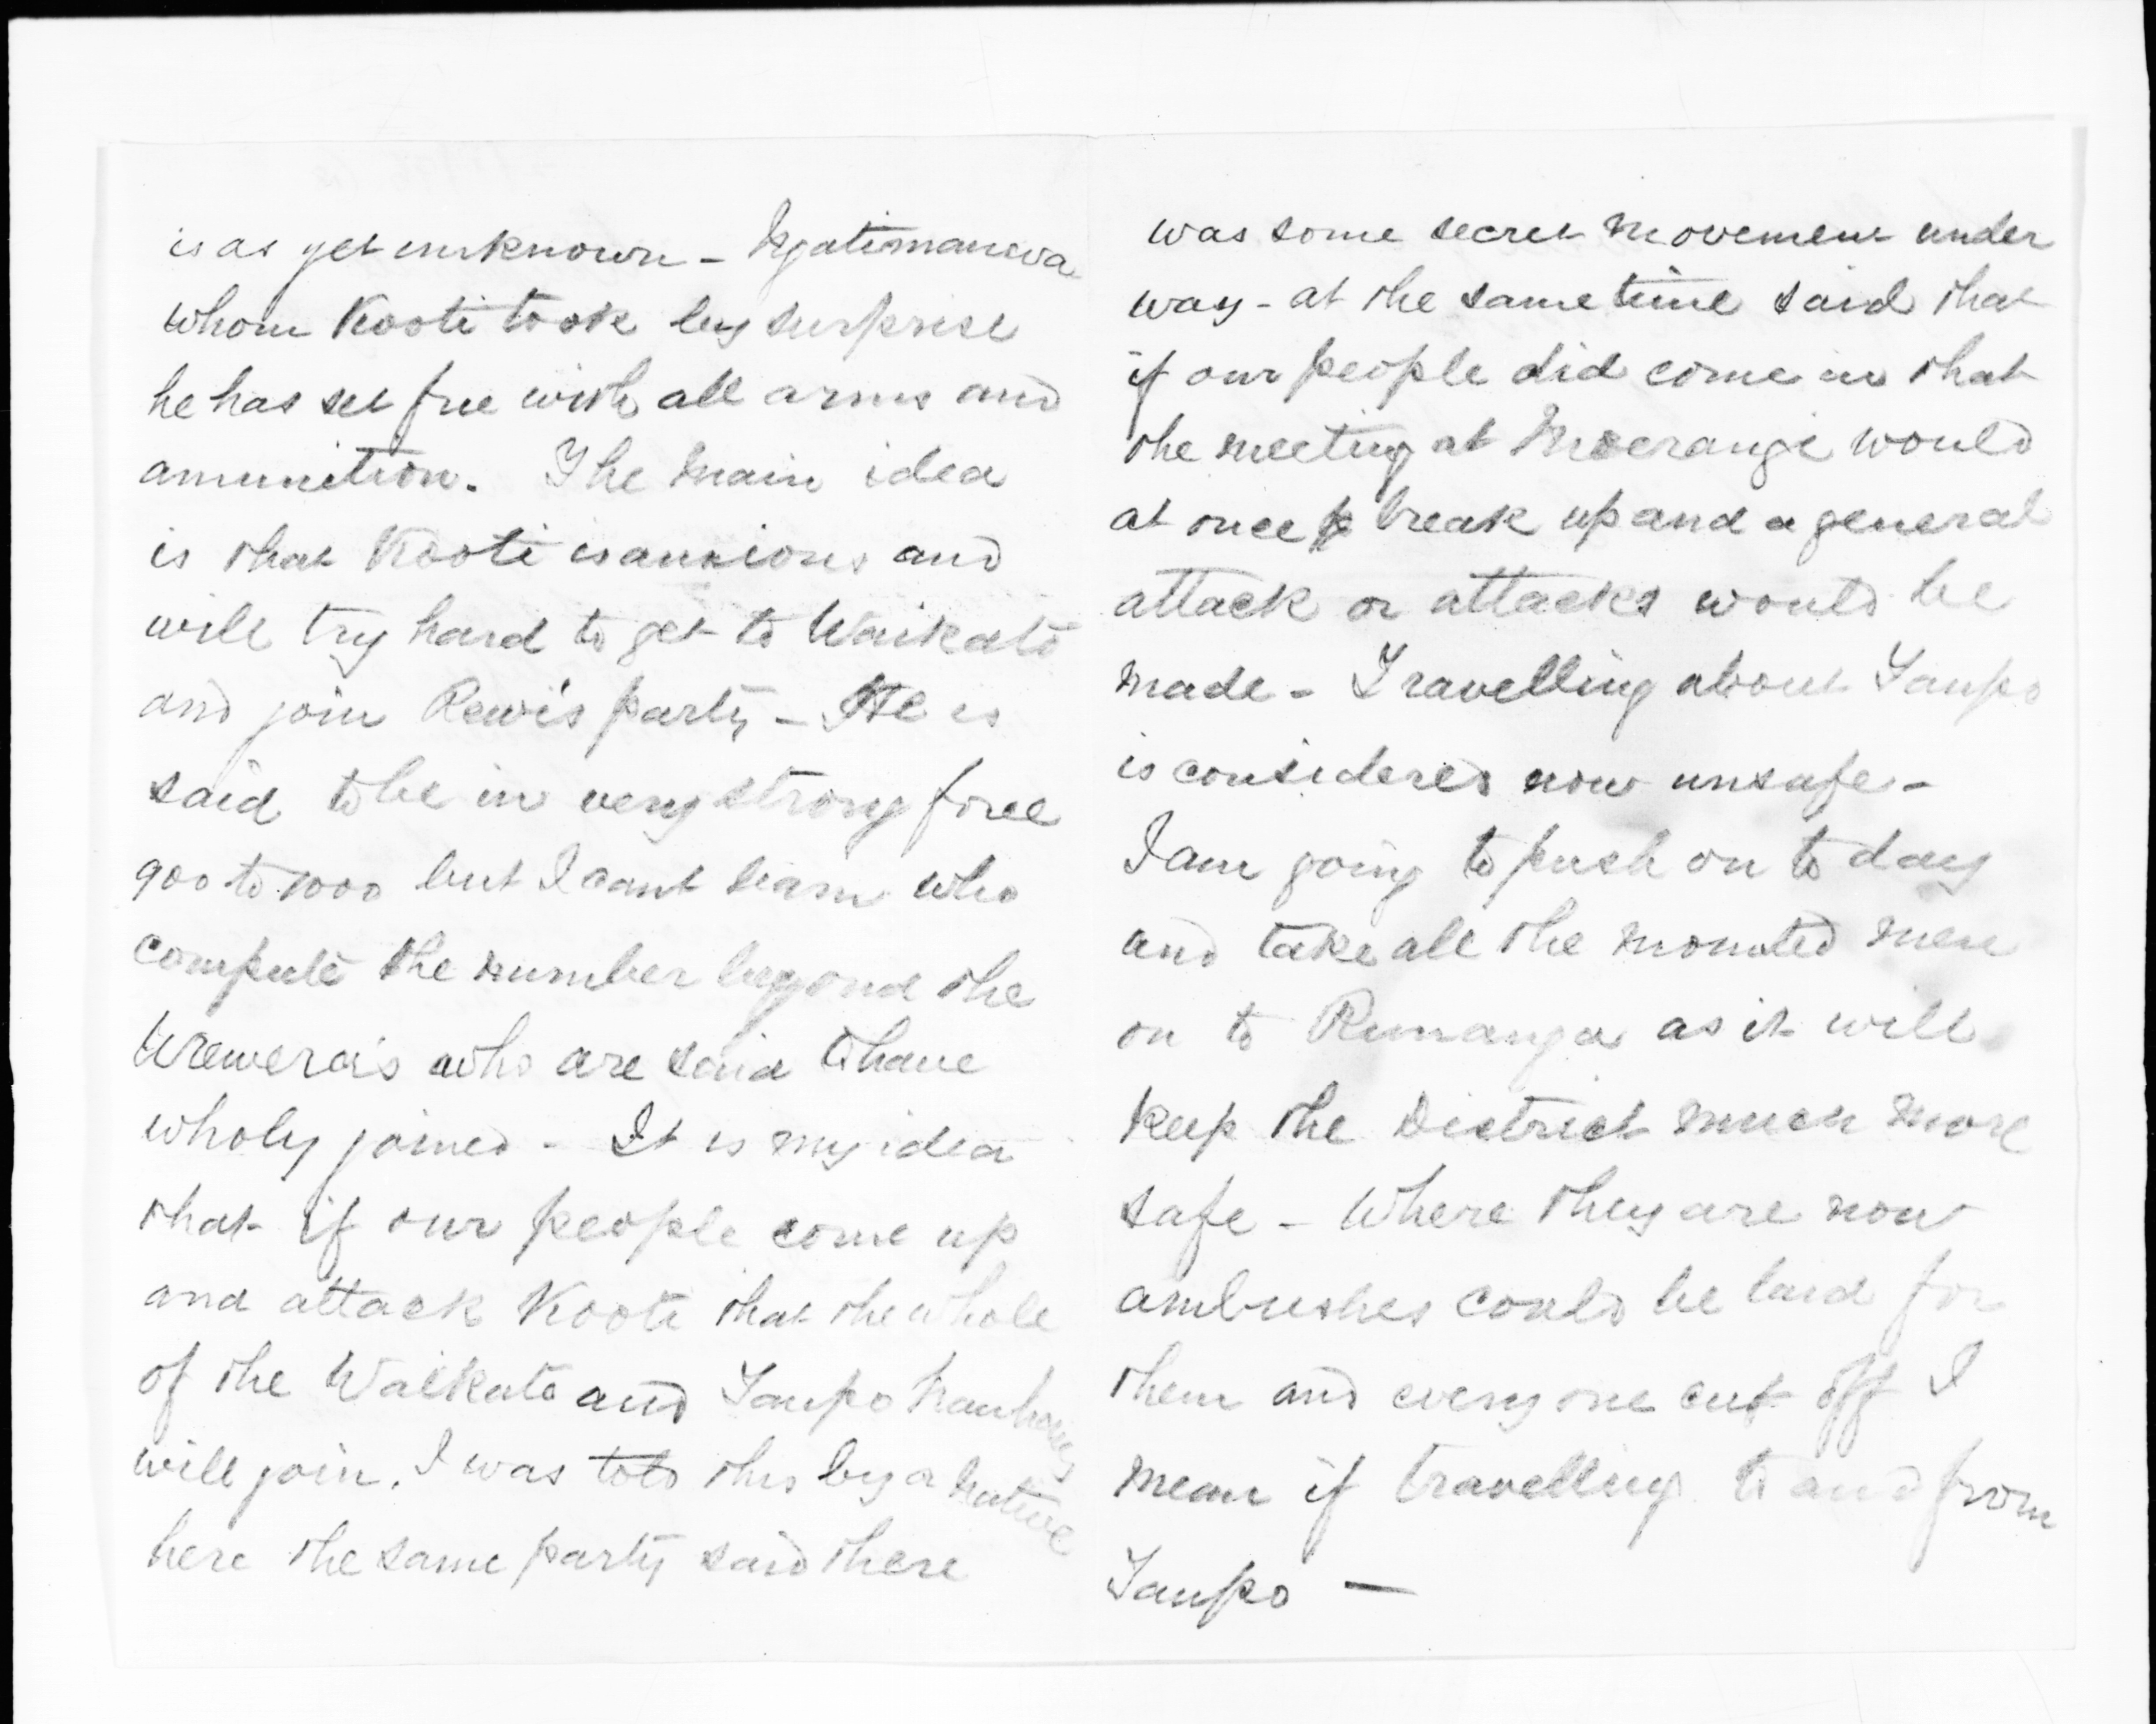 is as yet unknown - Ngatimanawa
whom Kooti took by surprise
he has set free with all arms and
amunition. The main idea
is that Kooti is anxious and
will try hard to get to Waikato
and join Rewi's party - He is
said to be in very strong force
900 to 1000 but I cant learn who
compute the number beyond the
Urewera's who are said to have
wholy joined - It is my idea
that if our people come up
and attack Kooti that the whole
of the Waikato and Taupo hauhaus
will join. I was told this by a native
here the same party said there
was some secret movement under
way - at the same time said that
if our people did come in that
the meeting at Moerangi would
at once break up and a general
attack or attacks would be
made - Travelling about Taupo
is considered now unsafe -
I am going to push on to day
and take all the mounted men
on to Runanga as it will
keep the District much more
safe - Where they are now
ambushes could be laid for
them and every one cut off I
mean if travelling to and from
Taupo —